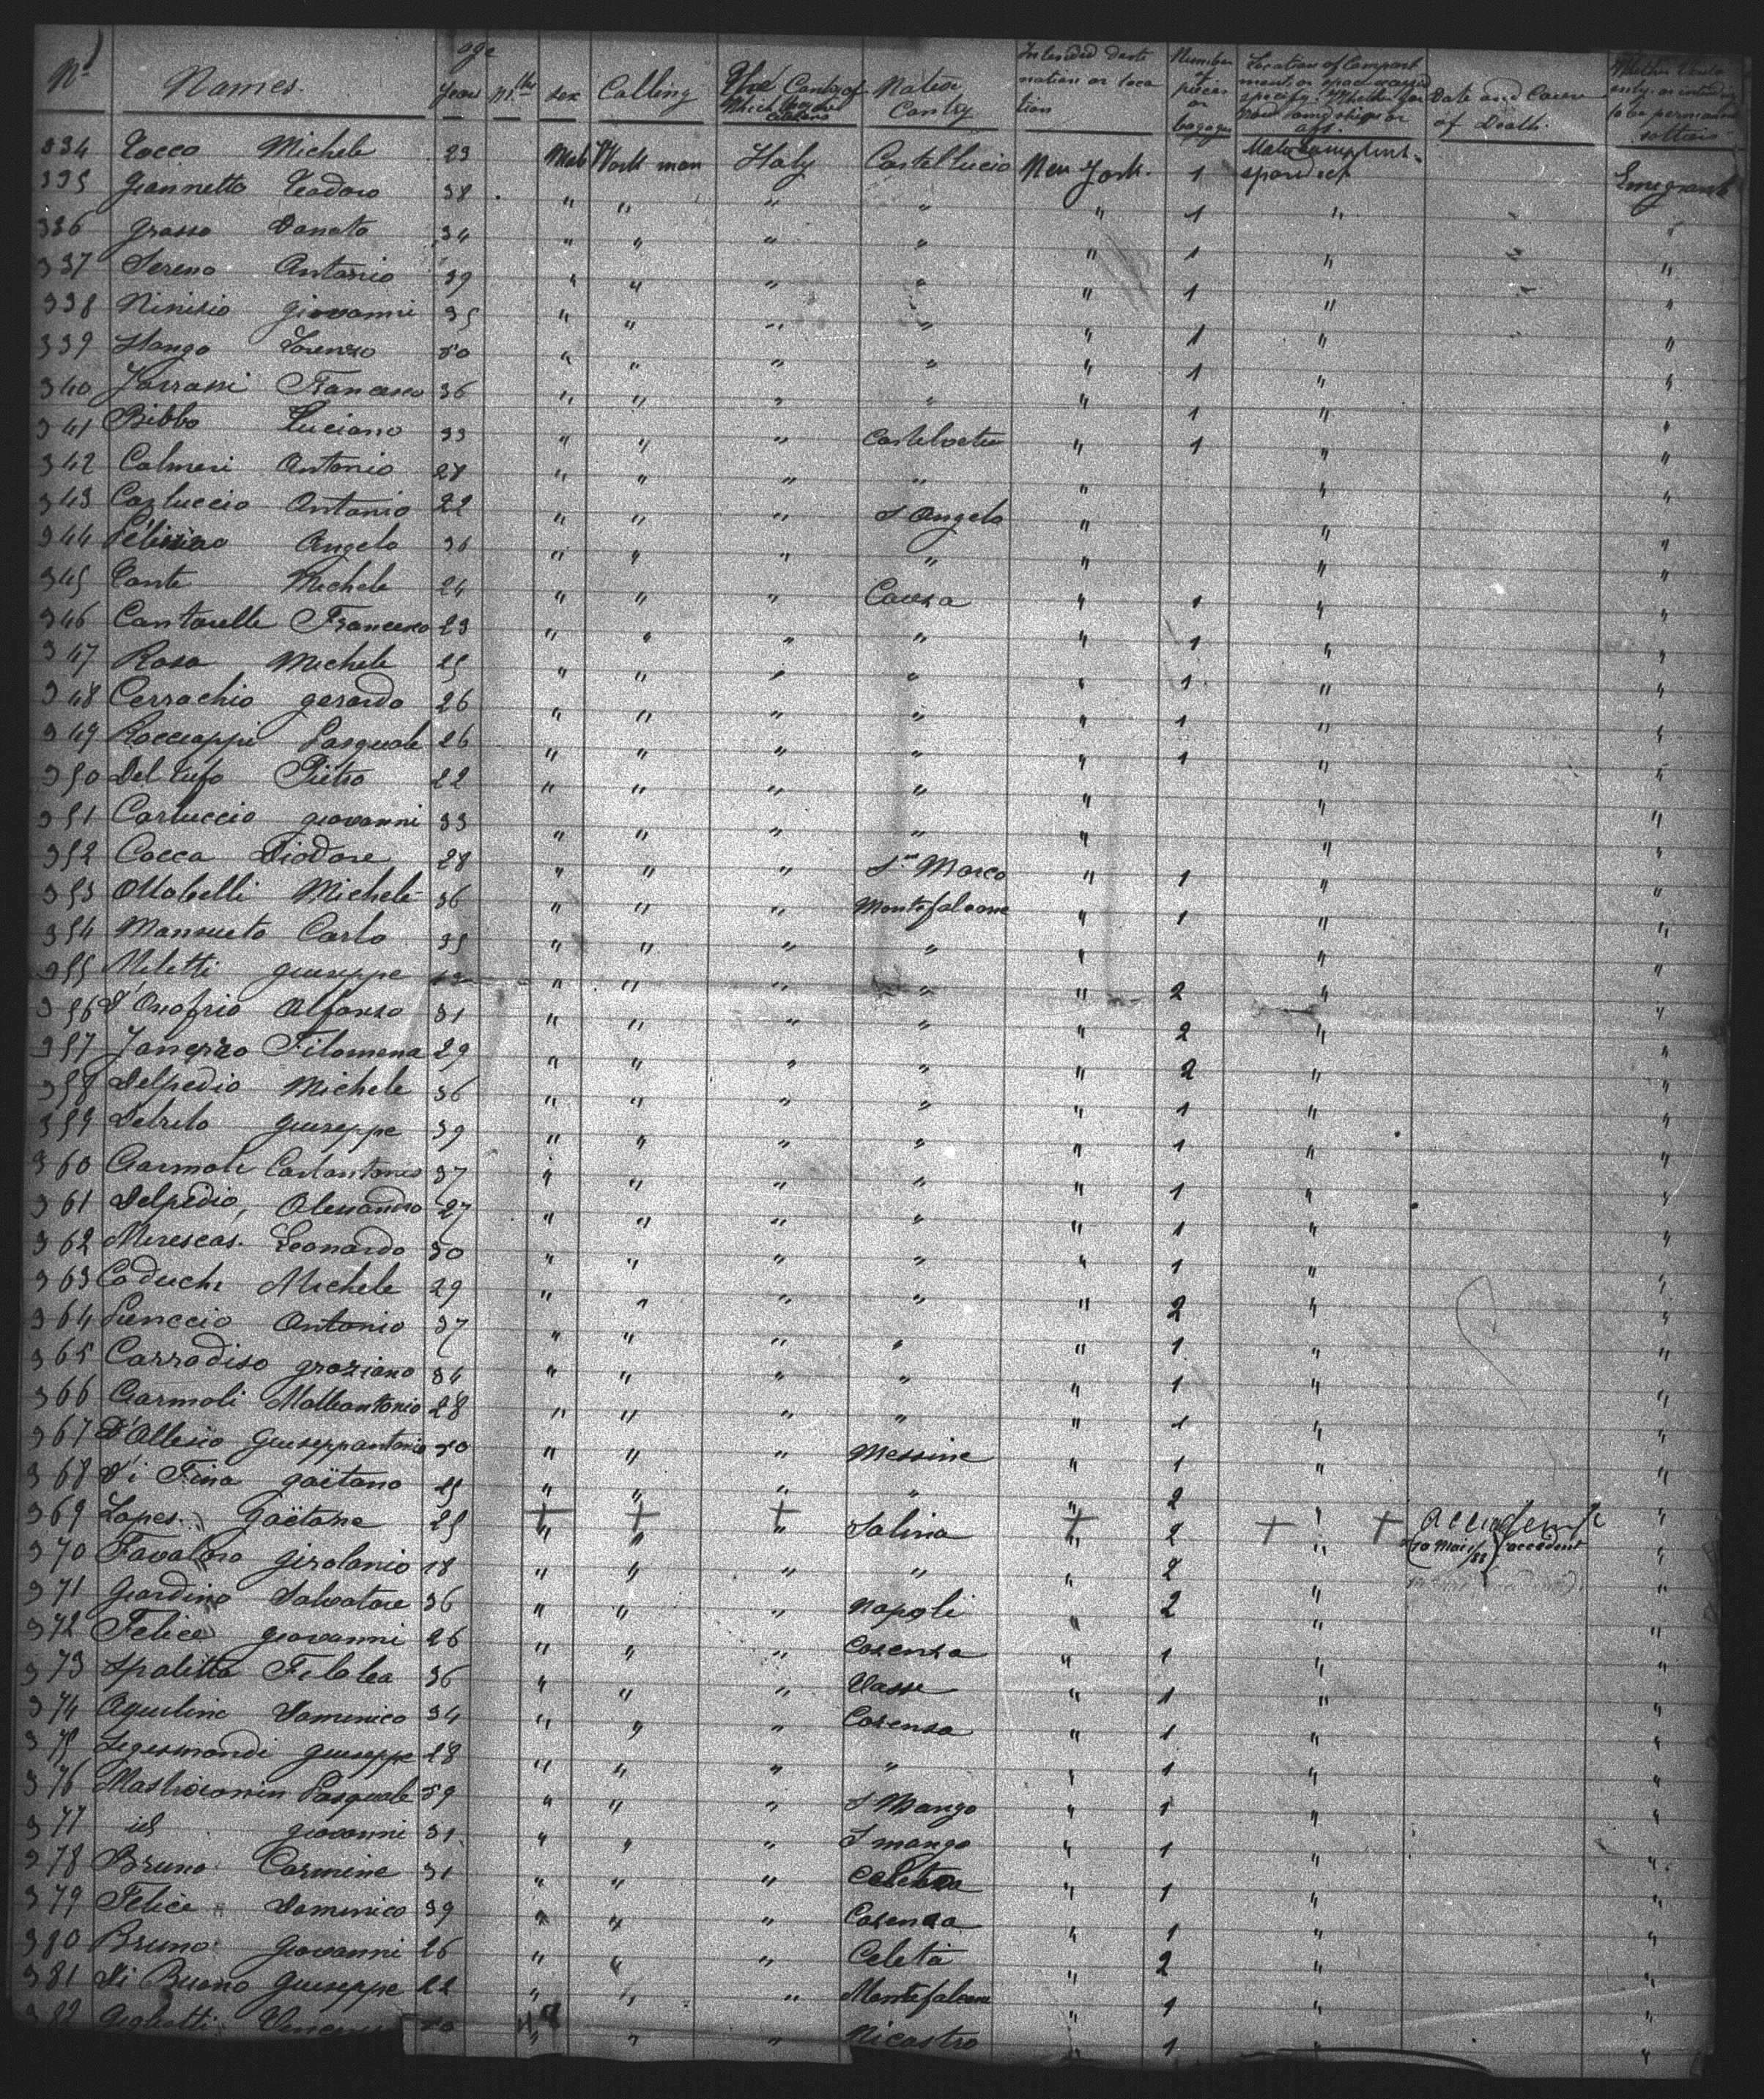 No Names. age Years Mths sex Calling The Contry of Which they are Citizens Native Contry Intended desti nation or loca tion Number of pieces or bagages Location of Compart ment or space Date and Cause of Death
334 Tocco Michele 23 Male Work man Italy Castelluccio New York. 1 Emigrant
335 Giannetto Teodoro 38 " " " " " 1 " "
336 Grasso Donato 34 " " " " " 1 " "
337 Sereno Antonio 39 " " " " " 1 " "
338 Ninisio Giovanni 35 " " " " " 1 " "
339 Stango Lorenzo 50 " " " " " 1 " "
340 Francesco 36 " " " " " 1 " "
341 Bibbo Luciano 33 " " " " 1 " "
342 Calmeri Antonio 28 " " " " " " "
343 Carluccio Antonio 22 " " " S Angelo " " "
344 Angelo 36 " " " " " " "
345 Conte Michele 24 " " " " 1 " "
346 Cantarelle Francesco 23 " " " " " 1 " "
347 Rosa Michele 25 " " " " " 1 " "
348 Cerrachio gerardo 26 " " " " " 1 " "
349 Pasquale 26 " " " " " 1 " "
350 Del Tufo Pietro 22 " " " " " " "
351 Carluccio giovanni 33 " " " " " " "
352 Cocca Diodore 28 " " " S. Marco " 1 " "
353 Ottobelli Michele 36 " " " Montefalcone " 1 " "
354 Mansueto Carlo 35 " " " " " " "
355 Miletti giuseppe " " " " " 2 " "
356 d'Onofrio Alfonso 31 " " " " " 2 " "
357 Filomena 29 " " " " " 2 " "
358 Delpedio Michele 36 " " " " " 1 " "
359 giuseppe 39 " " " " " 1 " "
360 Ciarmoli Carlantonio 37 " " " " " 1 " "
361 Delpedio, Alessandro 27 " " " " " 1 " "
362 Mirescas. Leonardo 30 " " " " " 1 " "
363 Coduchi Michele 29 " " " " " 2 " "
364 Antonio 37 " " " " " 1 " "
365 Carrodiso graziano 34 " " " " " 1 " "
366 Ciarmoli Matteantonio 28 " " " " " 1 " "
367 D'Allesio Giuseppantonio 30 " " " Messine " 1 " "
368 di Fina gaïtano 25 " " " " " 2 " "
369 Lopes. Gaëtane 25 " " " Salina " 2 " Accident "
(10 Mars/88) accident
370 Favaloro girolanio 18 " " " " " 2 " "
371 Giardino Salvatore 36 " " " Napoli " 2 " "
372 Felice giovanni 26 " " " Cosenza " 1 " "
373 Spalitta 36 " " " Vasse " 1 " "
374 Aquilino Domenico 34 " " " Cosenza " 1 " "
375 Segesmondi giuseppe 28 " " " " " 1 " "
376 Pasquale 59 " " " S Mango " 1 " "
377 id giovanni 31 " " " S mango " 1 " "
378 Bruno Carmine 31 " " " " 1 " "
379 Felice Domenico 39 " " " Cosenza " 1 " "
380 Bruno Giovanni 26 " " " Celeta " 2 " "
381 di Buono giuseppe 22 " " " Montefalcone " 1 " "
382 " " " Nicastro " 1 " "